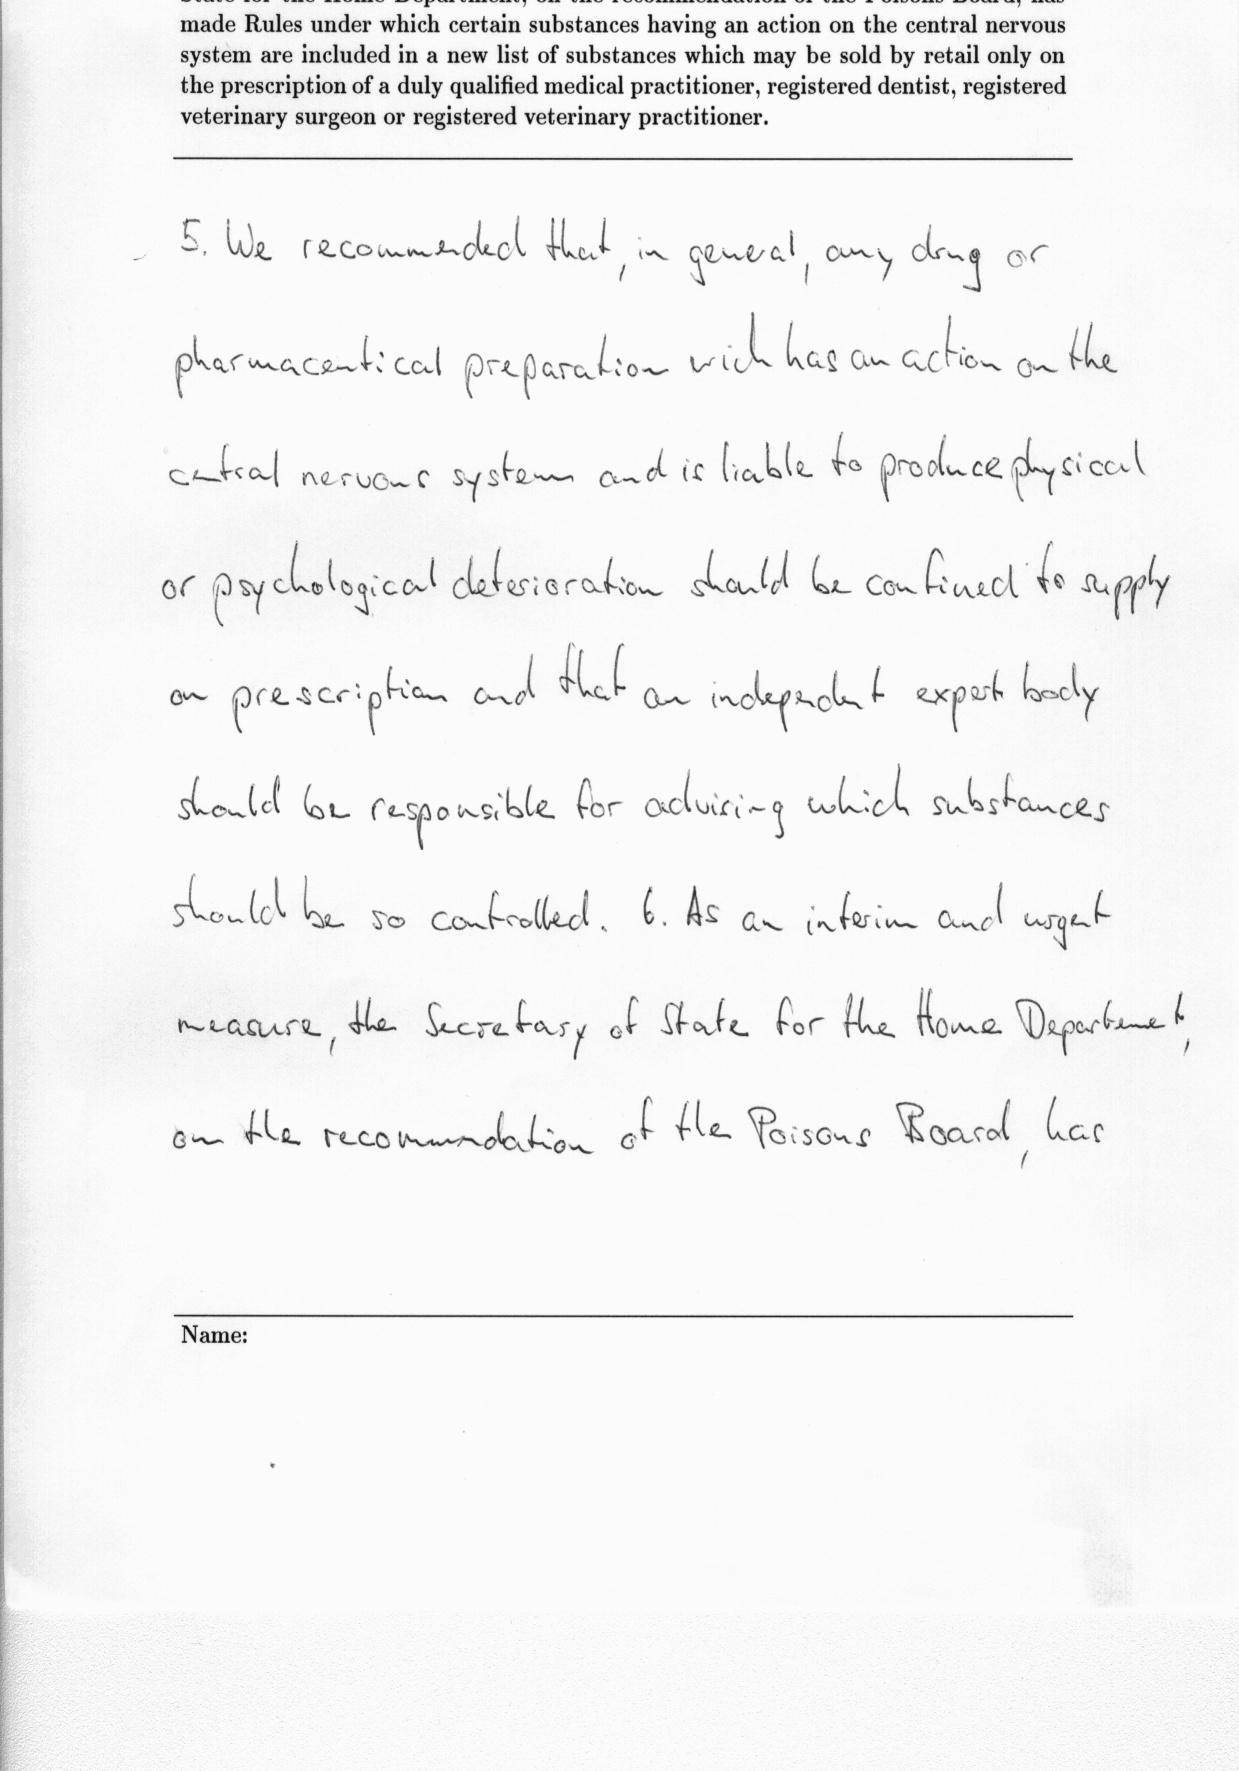 State for the Home Department, on the recommendation of the Poisons Board, has
made Rules under which certain substances having an action on the central nervous
system are included in a new list of substances which may be sold by retail only on
the prescription of a duly qualified medical practitioner, registered dentist, registered
veterinary surgeon or registered veterinary practitioner.
5. We recommended that, in general, any drug or
pharmaceutical preparation wich has an action on the
central nervous system and is liable to produce physical
or psychological deterioration should be confined to supply
on prescription and that an independent expert body
should be responsible for advising which substances
should be so controlled. 6. As an interim and urgent
measure, the Secretary of State for the Home Departement,
on the recommendation of the Poisons Board, has
Name: